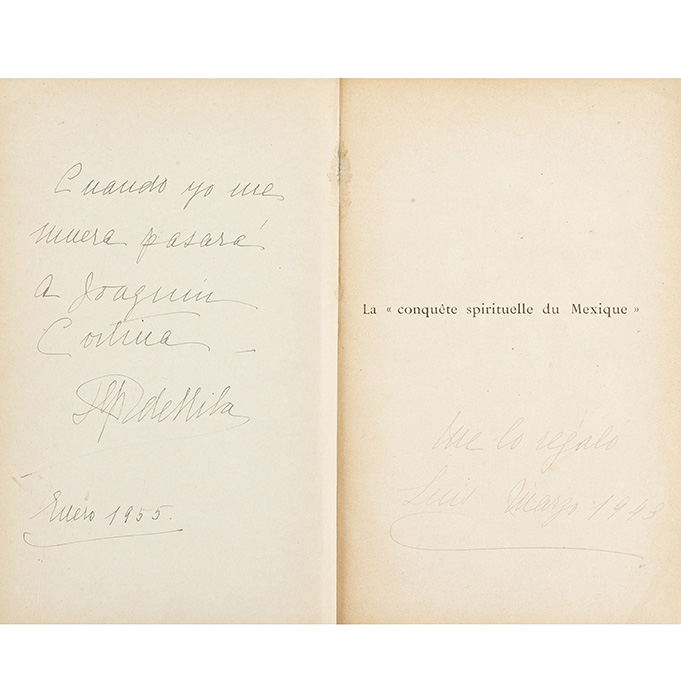 Cuando yo me
muera pasará
a Joaquin
Cortina
Enero 1955.
La « conquête spirituelle du Mexique »
Me lo regaló
Luis Marzo 1943